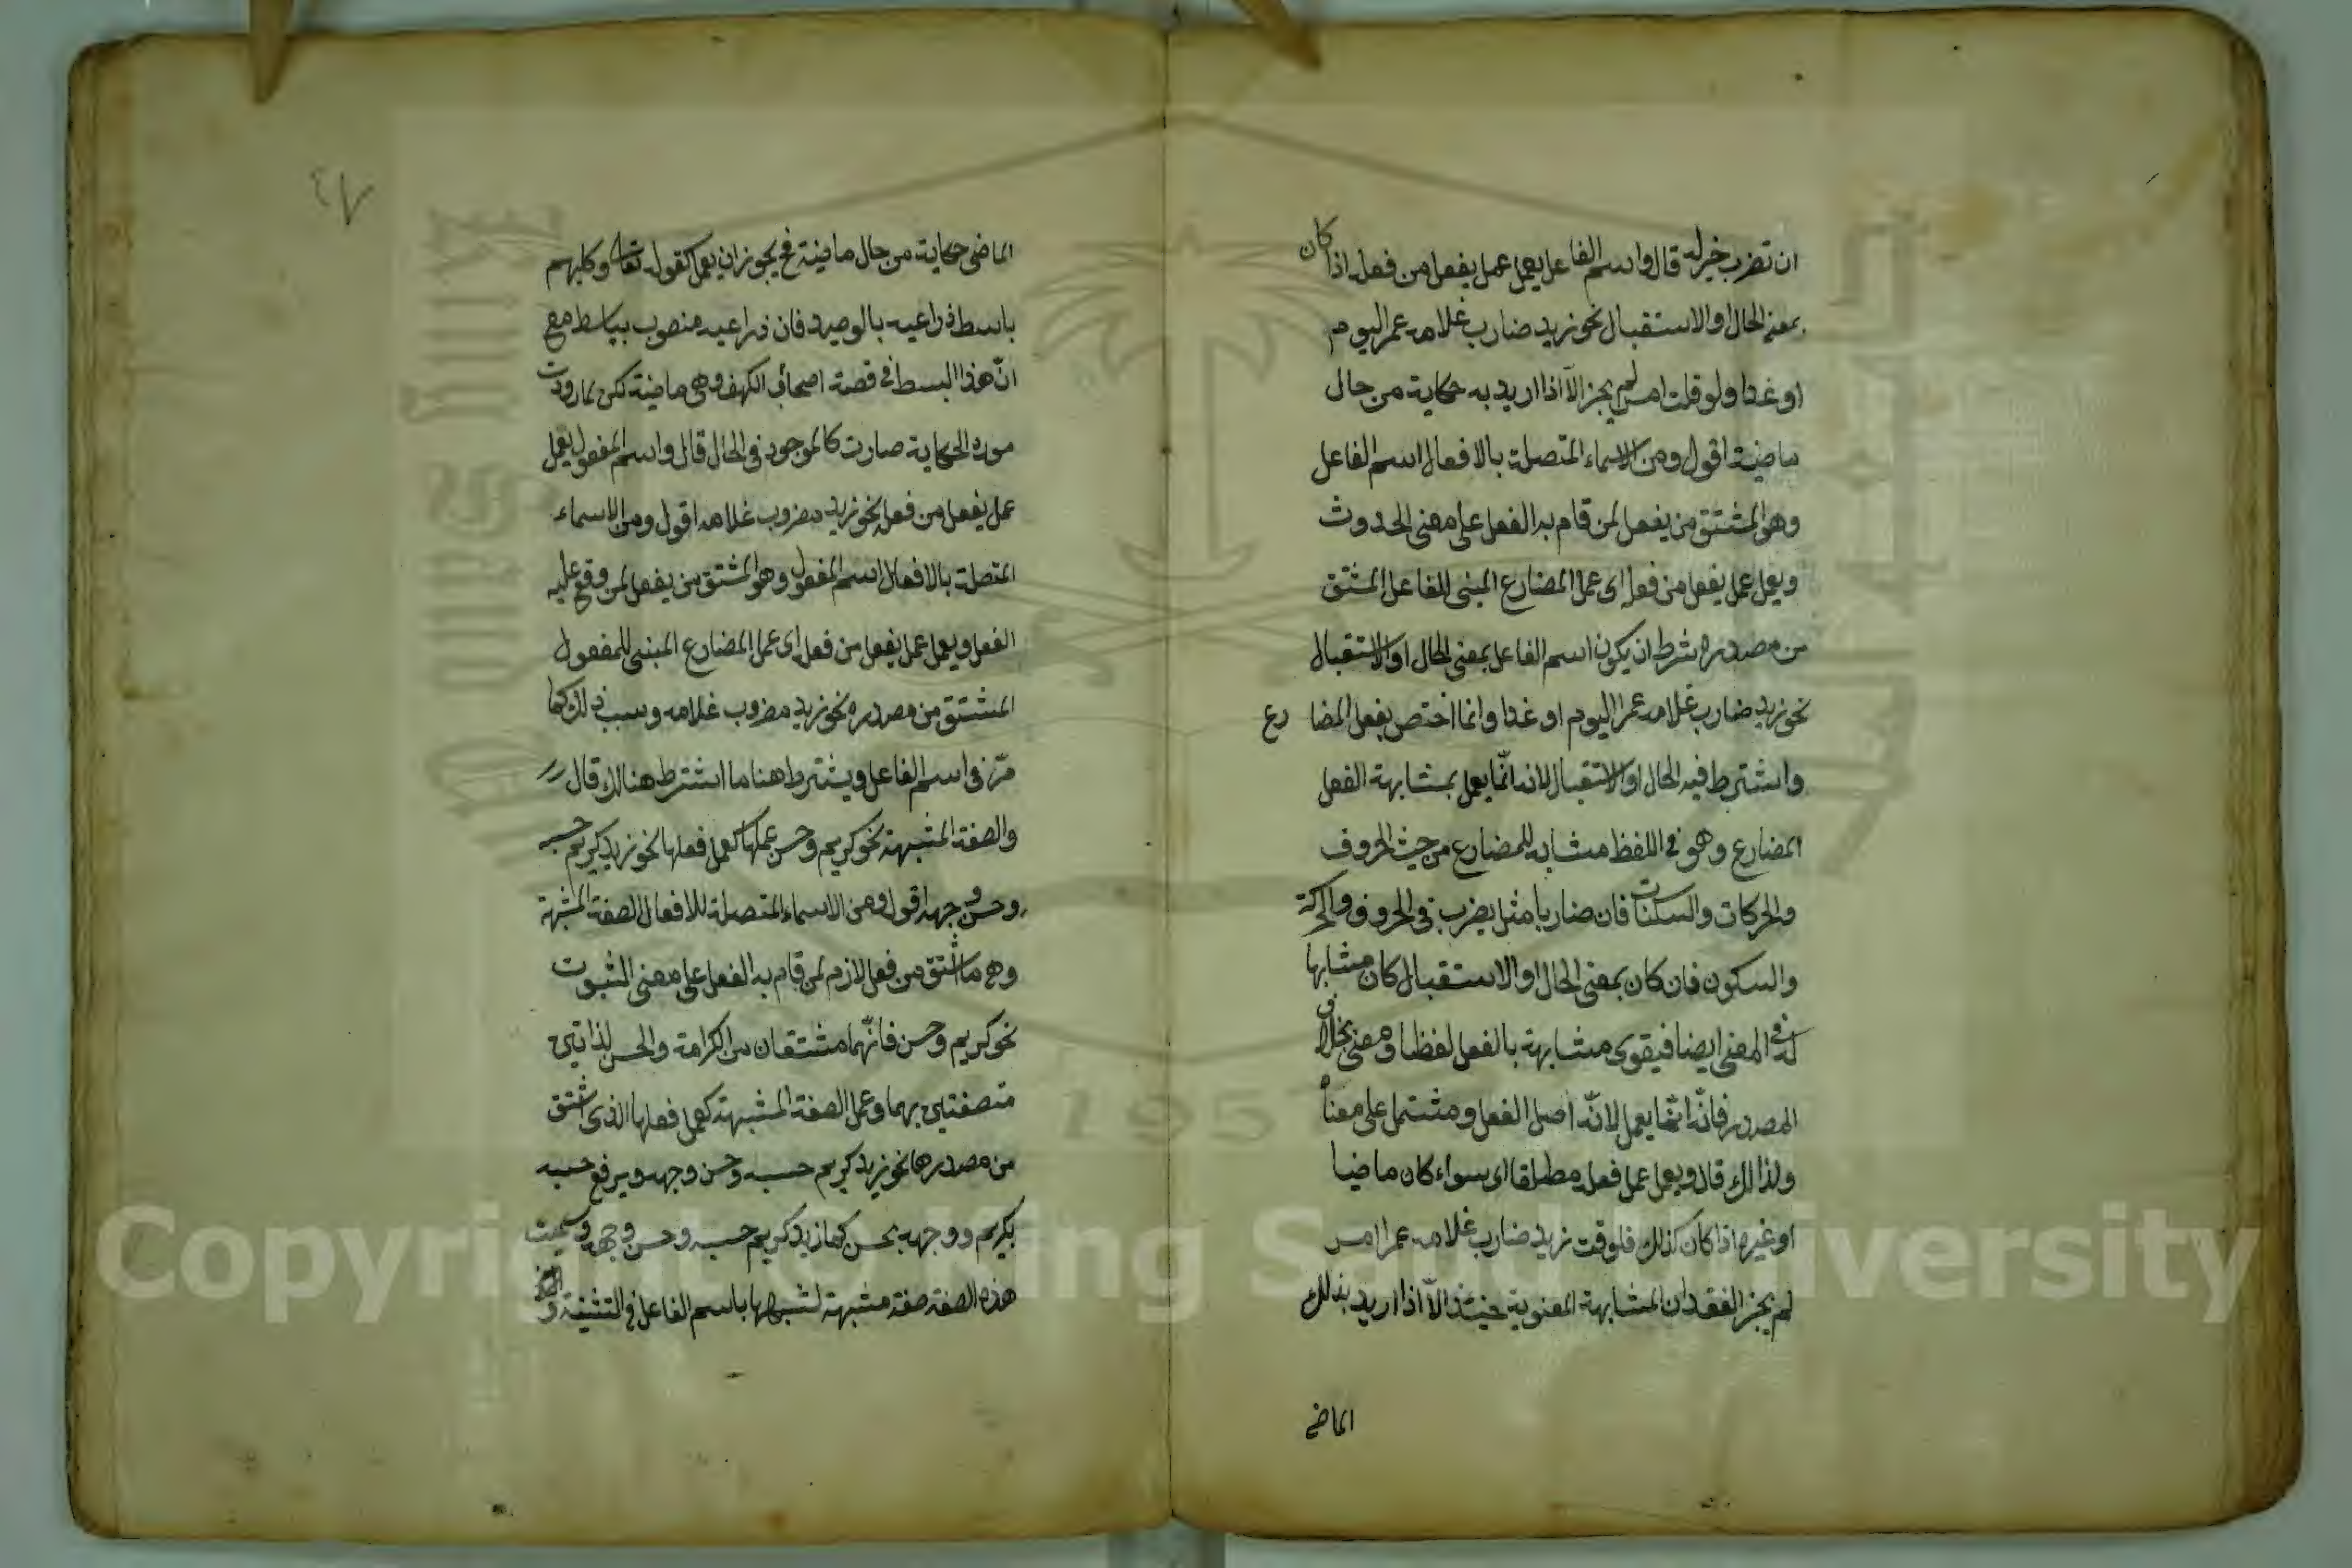 ان تضرب خير له قال واسم الفاعل يعمل عمل يفعل من فعله اذا كان
بمعنى الحال او الاستقبال نحو زيد ضارب غلامه عمرا اليوم
او غدا ولو قلت امس لم يجز الا اذا اريد به حكاية من حال
ماضية اقول ومن الاسماء المتصلة بالافعال اسم الفاعل
وهو المشتق من يفعل لمن قام به الفعل على معنى الحدوث
ويعمل عمل يفعل من فعله اى عمل المضارع المبنى للفاعل المشتق
من مصدره بشرط ان يكون اسم الفاعل بمعنى الحال او الاستقبال
نحو زيد ضارب غلامه عمرا اليوم او غدا وانما اختص بفعل المضا رع
واشترط فيه الحال او الاستقبال لانه انّما يعمل بمشابهة الفعل
المضارع وهو فى اللفظ مشابه للمضارع من حيث الحروف
والحركات والسكنات فان ضاربا مثل يضرب فى الحروف والحركة
والسكون فان كان بمعنى الحال او الاستقبال كان مشابها
له فى المعنى ايضا فيقوى مشابهة بالفعل لفظا ومعنى بخلاف
المصدر فانّه انّما يعمل لانّه اصل الفعل ومشتمل على معناه
ولذالك قال ويعمل عمل فعله مطلقا اى سواء كان ماضيا
او غيره اذا كان كذلك فلو قت زيد ضارب غلامه عمرا امس
لم يجز لفقدان المشابهة المعنوية حينئذ الّا اذا اريد بذلك
الماضى
٤٧
الماضى حكاية من حال ماضية فح يجوز ان يعمل كقوله تعا وكلبهم
باسط ذراعيه بالوصيد فان ذراعيه منصوب بباسط مع
انّ هذا البسط فى قصة اصحاب الكهف وهى ماضية لكن لما رودت
مورد الحكاية صارت كالموجود فى الحال قال واسم المفعول يعمل
عمل يفعل من فعله نحو زيد مضروب غلامه اقول ومن الاسماء
المتصلة بالافعال اسم المفعول وهو المشتق من يفعل لمن وقع عليه
الفعل ويعمل عمل يفعل من فعله اى عمل المضارع المبنى للمفعول
المشتق من مصدره نحو زيد مضروب غلامه وسبب ذلك كما
مرّ فى اسم الفاعل ويشترط هنا ما اشترط هنالك قال
والصفة المشبهة نحو كريم وحسن عملها كعمل فعلها نحو زيد كريم حسبه
وحسن وجهه اقول ومن الاسماء المتصلة للافعال الصفة المشبهة
وهى ما شتق من فعل لازم لمن قام به الفعل على معنى الثبوت
نحو كريم وحسن فانّهما مشتقان من الكرامة والحسن لذاتين
متصفتين بهما وعمل الصفة المشبهة كعمل فعلها الذى اشتق
من مصدرها نحو زيد كريم حسبه وحسن وجهه ويرفع حسبه
بكريم ووجهه بحسن كما زيد كريم حسبه وحسن وجهه وسميت
هذه الصفة صفة مشبهة لشبهها باسم الفاعل فى التثنية و
Copyright © King Saud University
195